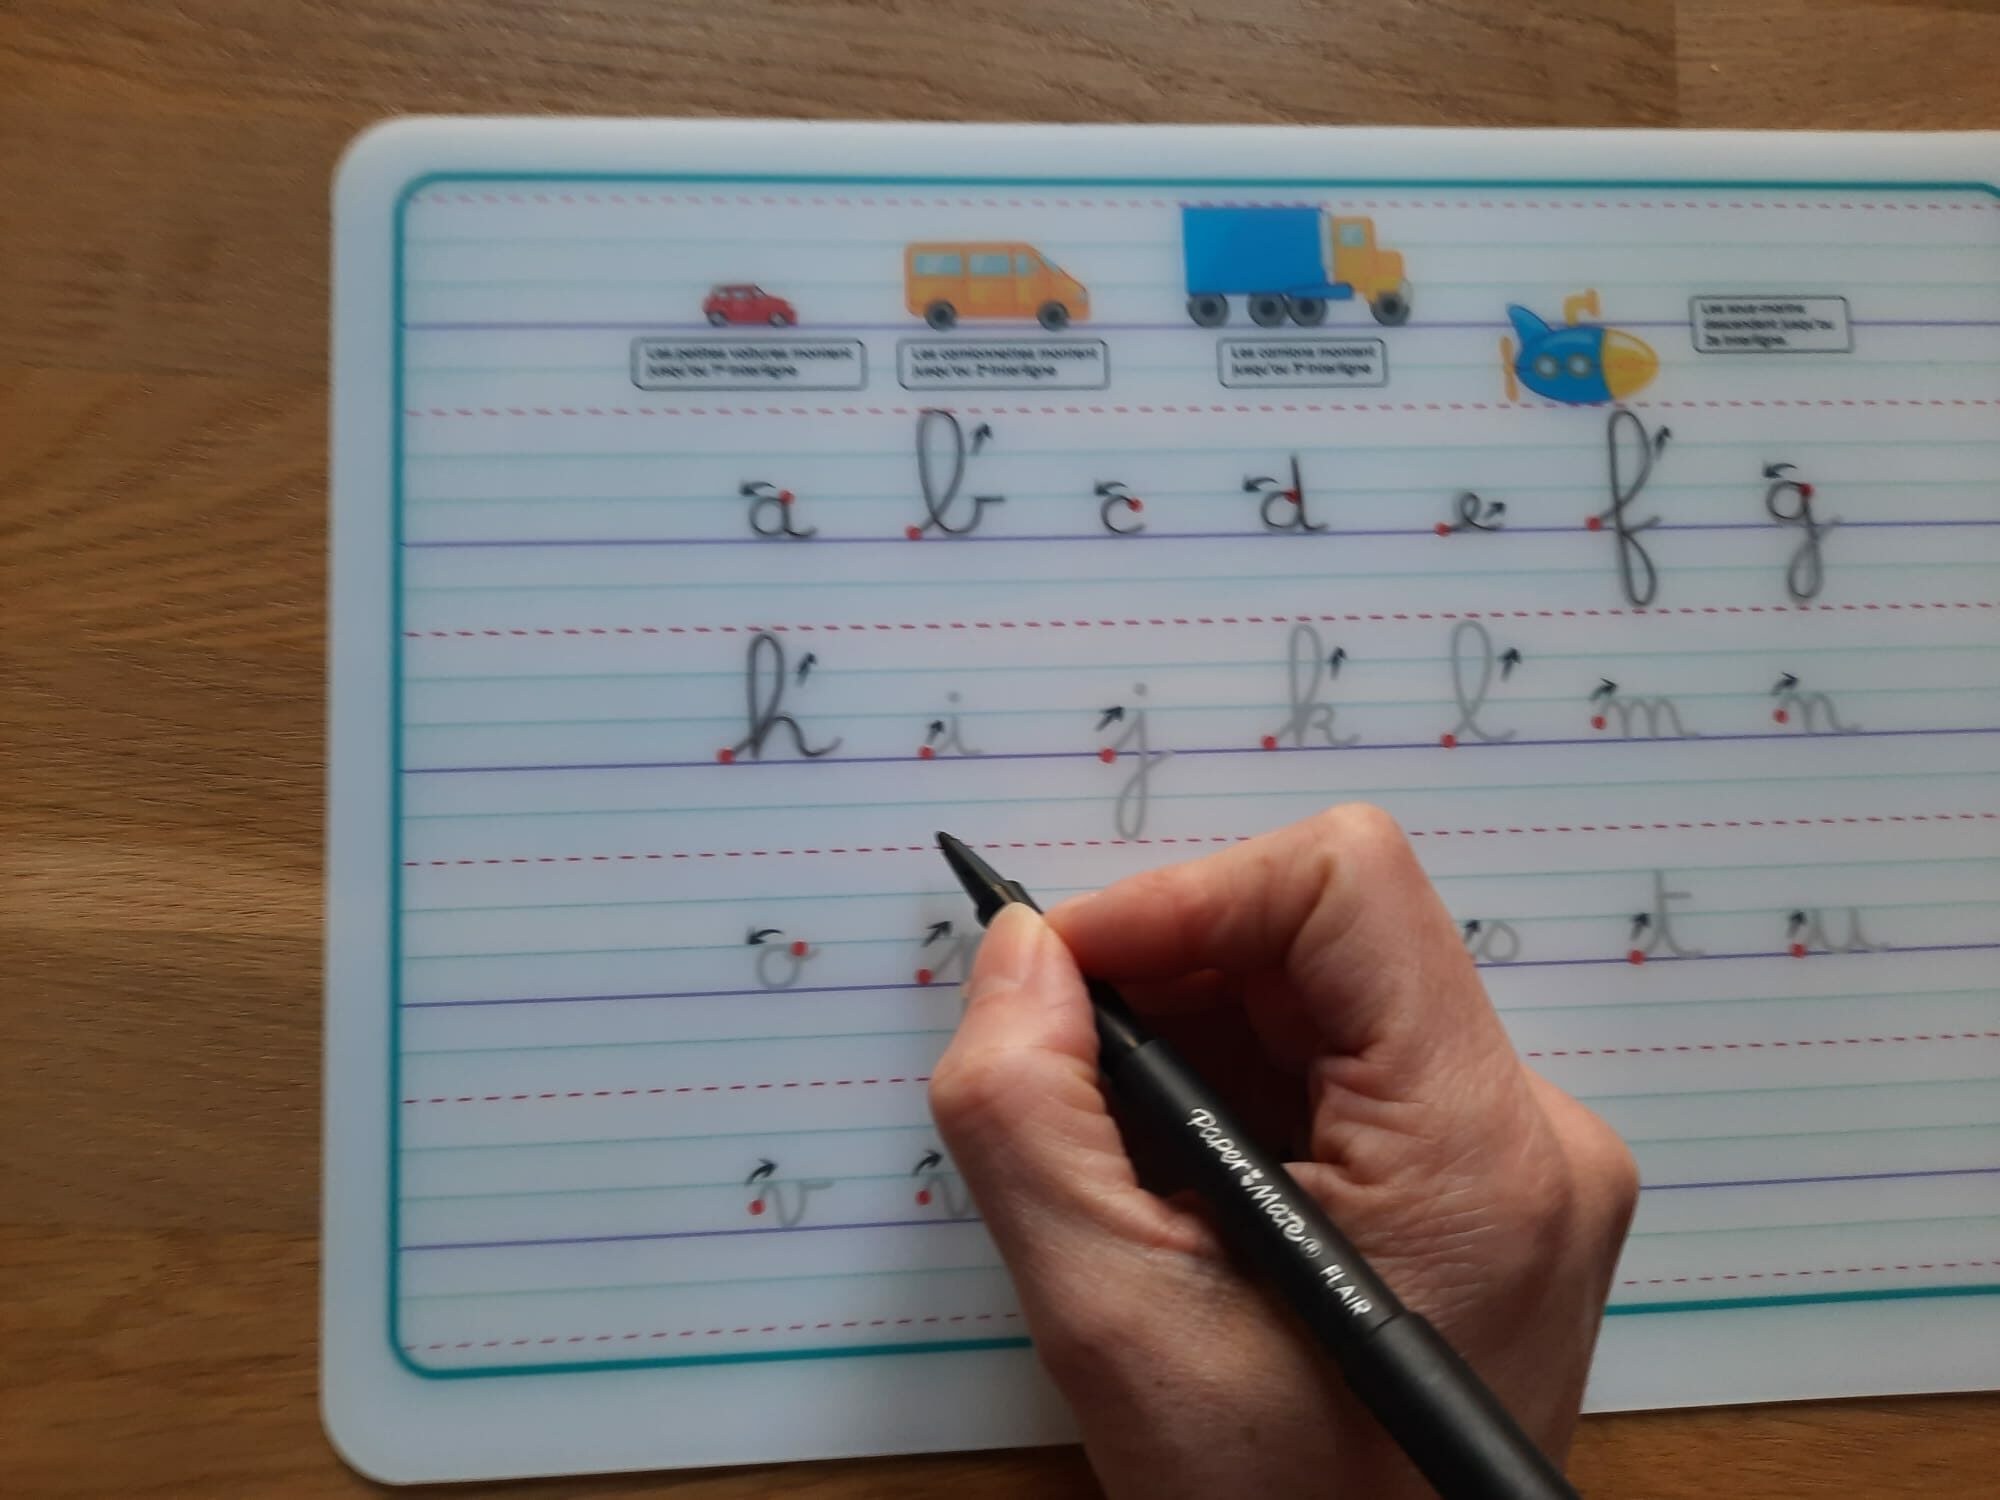 Les petites voitures montent
jusqu'au 1er interligne.
Les camionnettes montent
jusqu'au 2e interligne.
Les camions montent
jusqu'au 3e interligne.
Les sous-marins
descendent jusqu'au
2e interligne.
a b c d e f g
h i j k l m n
o t u
v
Paper Mate® FLAIR